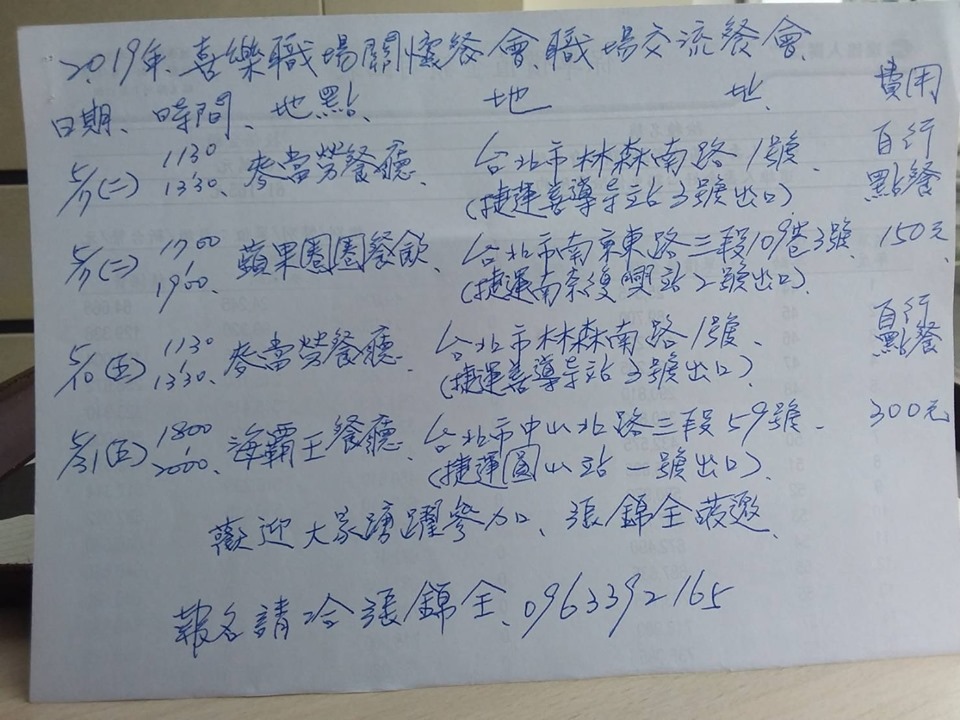 2019年、喜樂職場關懷餐會、職場交流餐會
日期、時間、地點、地址、費用
5/7(二) 1130 1330、麥當勞餐廳、台北市林森南路1號、自行點餐
(捷運善導寺站3號出口)
5/7(二) 1700 1900、蘋果圈圈餐飲、台北市南京東路三段109巷3號、150元
(捷運南京復興站2號出口)
5/10(五) 1130 1330、麥當勞餐廳、台北市林森南路1號、自行點餐
(捷運善導寺站3號出口)
5/31(五) 1800 2000、海霸王餐廳、台北市中山北路三段59號、300元
(捷運圓山站一號出口)
歡迎大家踴躍參加、張錦全敬邀
報名請洽張錦全、0963392165